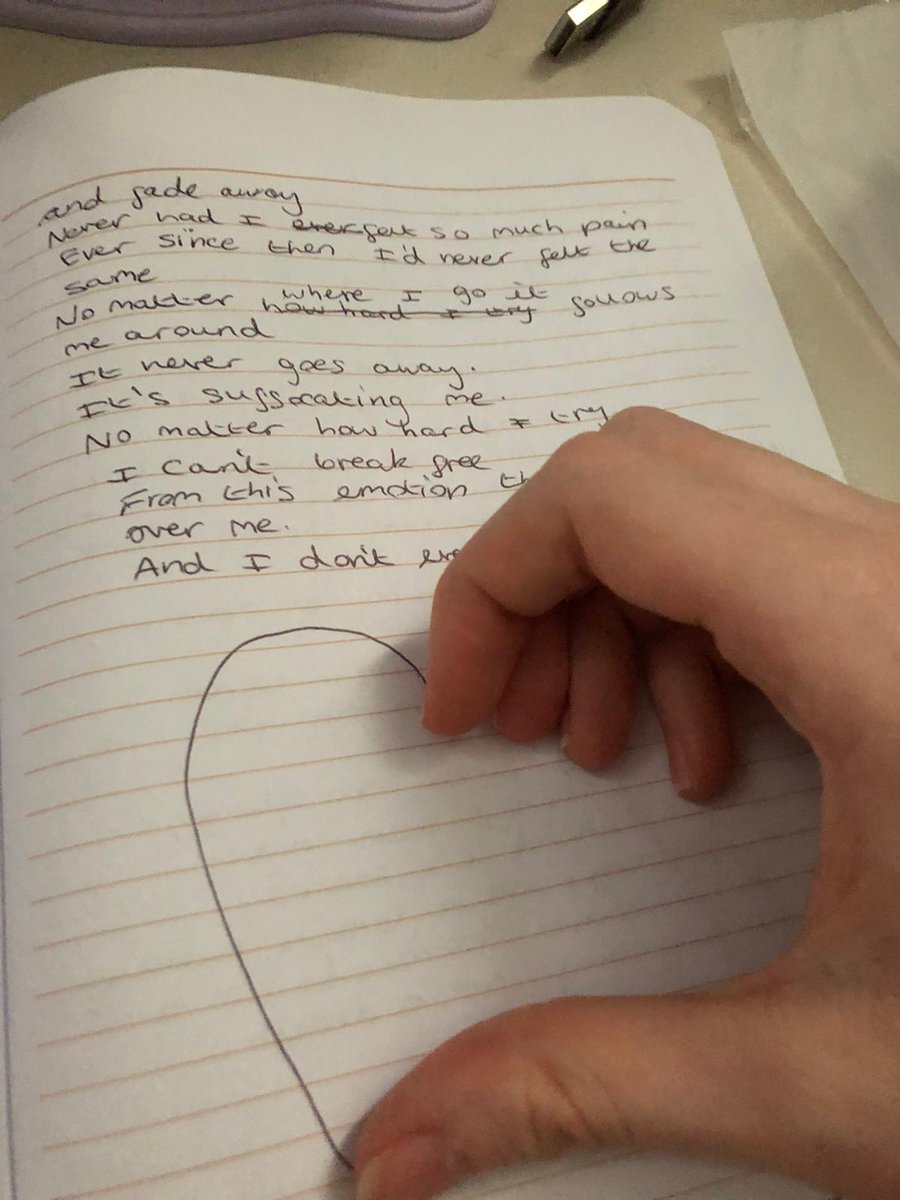 and fade away
Never had I ever felt so much pain
Ever since then I'd never felt the
same
No matter how hard I try where I go it follows
me around
It never goes away.
It's suffocating me.
No matter how hard I try
I can't break free
From this emotion
over me.
And I don't